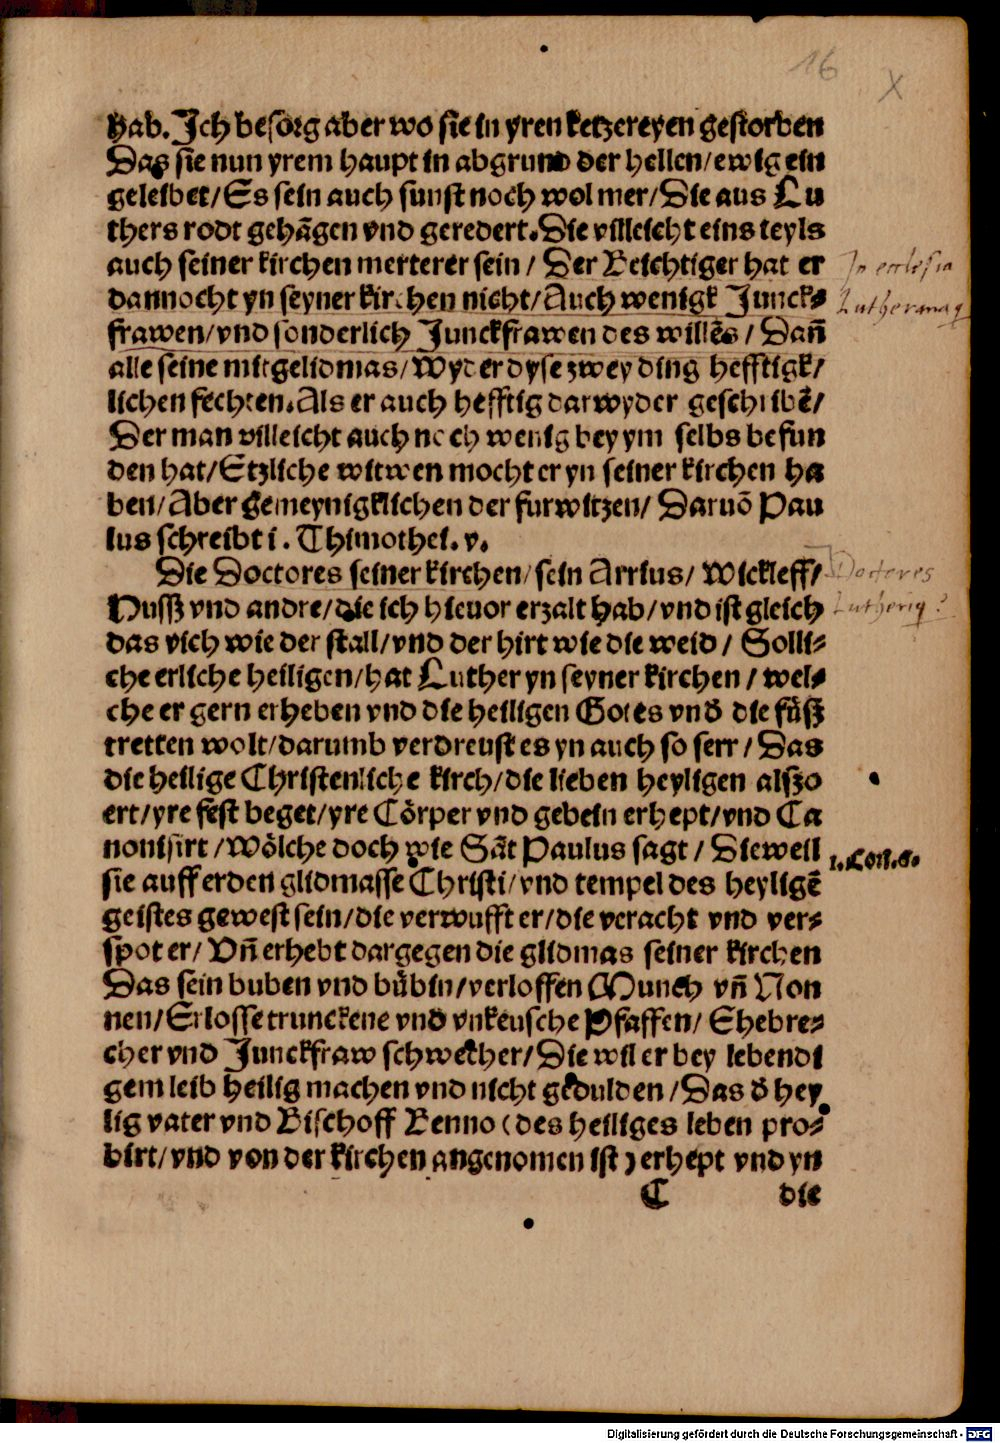 16
X
hab. Ich besorg aber wo sie in yren ketzereyen gestorben
Das sie nun yrem haupt in abgrund der hellen/ewig ein
geleibet/Es sein auch sunst noch wol mer/Die aus Lu
thers rodt gehãgen vnd geredert. Die villeicht eins teyls
auch seiner kirchen merterer sein/ Der Beichtiger hat er
dannocht yn seyner kirchen nicht/Auch wenigk Junck⸗
frawen/vnd sonderlich Junckfrawen des willẽs/ Dañ
alle seine mitgelidmas/Wyder dyse zwey ding hefftigk/
lichen fechten. Als er auch hefftig darwyder geschribẽ/
Der man villeicht auch noch wenig bey ym selbs befun
den hat/Etzliche witwen mocht er yn seiner kirchen ha
ben/Aber gemeynigklichen der furwitzen/ Daruõ Pau
lus schreibt i. Thimothei. v.
Die Doctores seiner kirchen/sein Arrius/ Wickleff/
Hussz vnd andre/die ich hieuor erzalt hab/vnd ist gleich
das vich wie der stall/vnd der hirt wie die weid/ Solli⸗
che erliche heiligen/hat Luther yn seyner kirchen/wel⸗
che er gern erheben vnd die heiligen Gotes vnď die fůsz
tretten wolt/darumb verdreust es yn auch so serr/Das
die heilige Christenliche kirch/die lieben heyligen alszo
ert/yre fest beget/yre Cörper vnd gebein erhept/vnd Ca
nonisirt/Wölche doch wie Sãt Paulus sagt/Dieweil
sie auff erden glidmasse Christi/vnd tempel des heyligẽ
geistes gewest sein/die verwufft er/die veracht vnd ver⸗
spot er/ Vñ erhebt dargegen die glidmas seiner kirchen
Das sein buben vnd bůbin/verloffen Munch vñ Non
nen/Erlosse trunckene vnd vnkeusche Pfaffen/ Ehebre⸗
cher vnd Junckfraw schwecher/Die wil er bey lebendi
gem leib heilig machen vnd nicht gedulden/Das ď hey
lig vater vnd Bischoff Benno (des heiliges leben pro⸗
birt/vnd von der kirchen angenomen ist) erhept vnd yn
C die
In ecclesia
Lutherana
Doctores
1. Cori. 6.
Digitalisierung gefördert durch die Deutsche Forschungsgemeinschaft - DFG